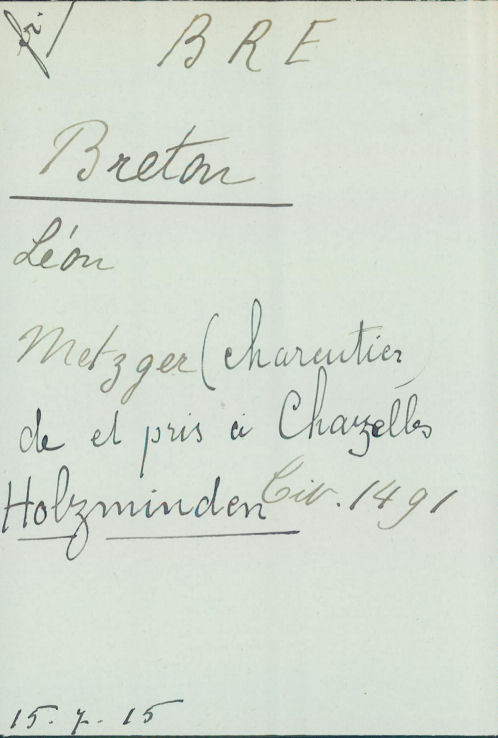 fr.
BRE
Breton
Léon
Metzger (charcutier)
de et pris à Chazelles
Holzminden Civ. 1491
15. 7. 15